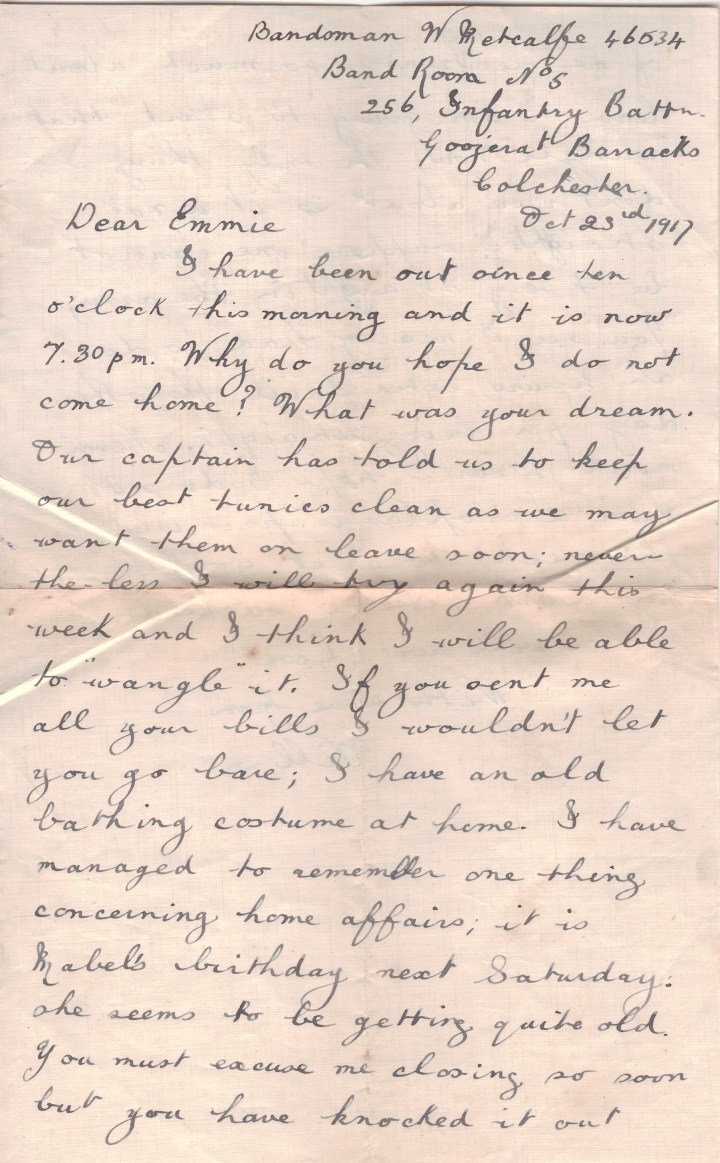 Bandsman W Metcalfe 46534
Band Room No 5
256, Infantry Battn.
Goojerat Barracks
Colchester.
Oct 23rd 1917
Dear Emmie
I have been out since ten
o'clock this morning and it is now
7.30 pm. Why do you hope I do not
come home? What was your dream.
Our captain has told us to keep
our best tunics clean as we may
want them on leave soon; never-
the-less I will try again this
week and I think I will be able
to "wangle" it. If you sent me
all your bills I wouldn't let
you go bare; I have an old
bathing costume at home. I have
managed to remember one thing
concerning home affairs; it is
Mabel's birthday next Saturday:
she seems to be getting quite old.
You must excuse me closing so soon
but you have knocked it out